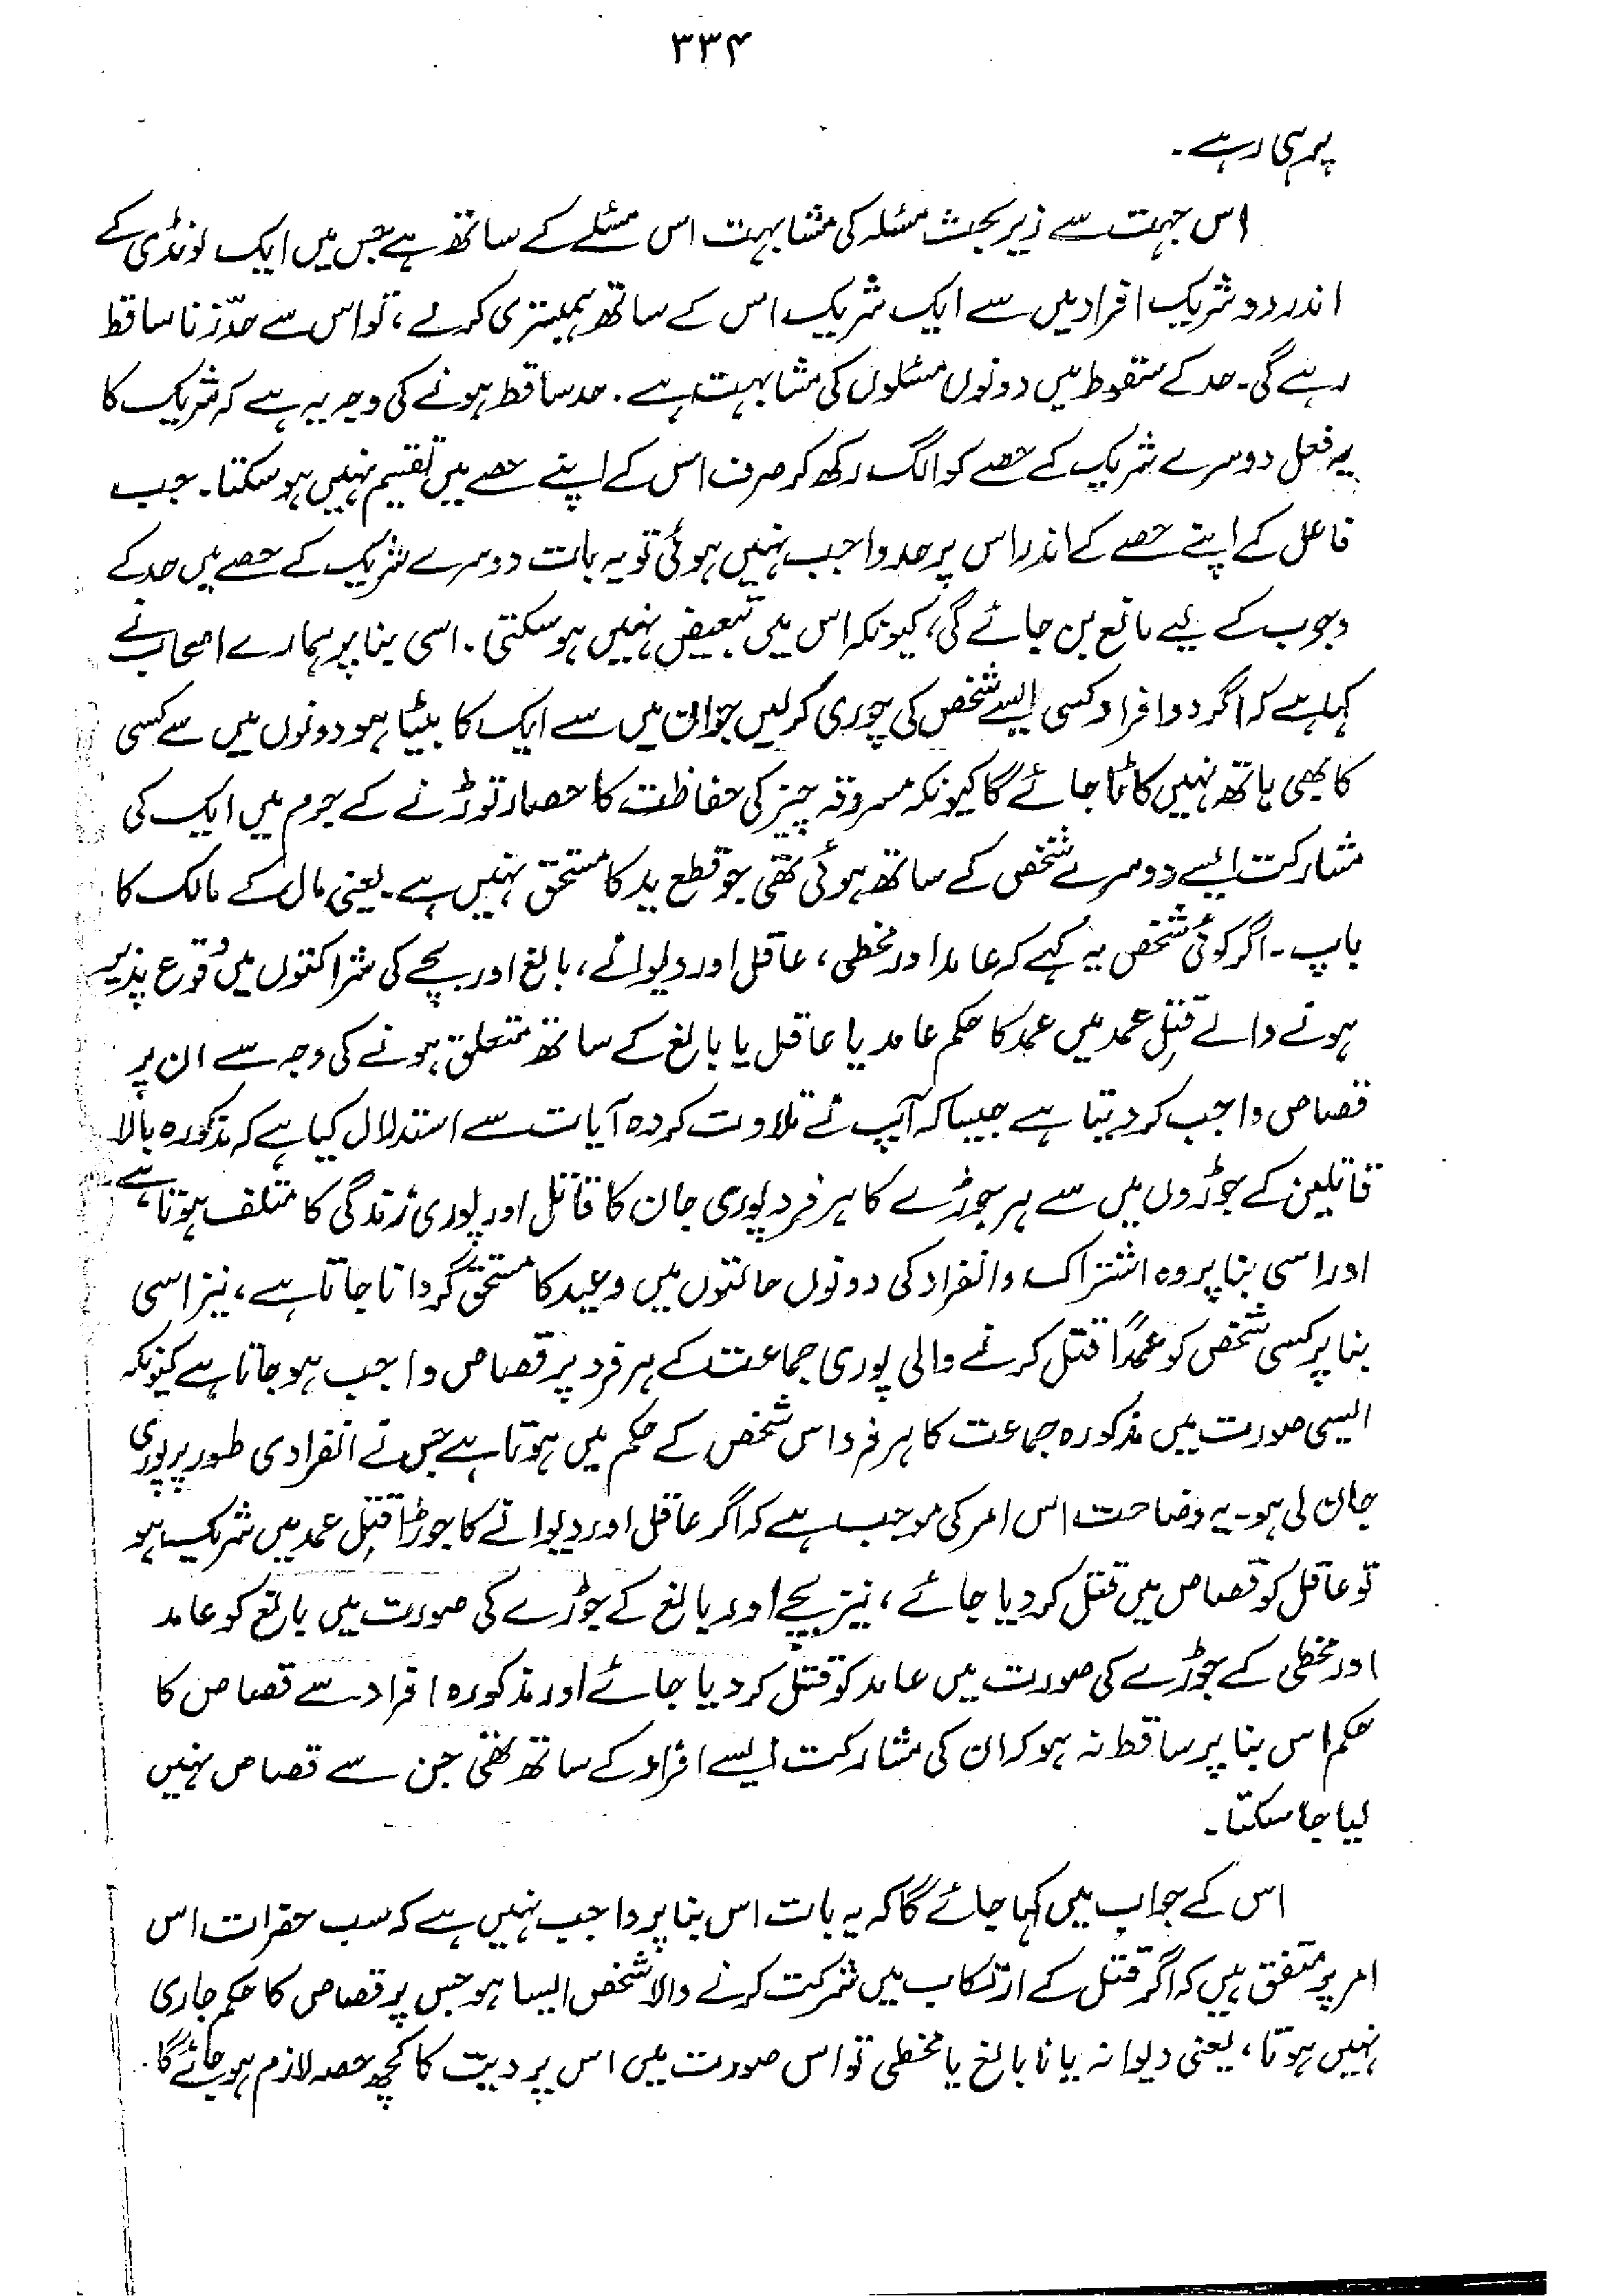 ۳۳۴
پر ہی رہے۔
اس جہت سے زیر بحث مسئلہ کی مشابہت اس مسئلے کے ساتھ ہے جس میں ایک لونڈی کے
اندر دو شریک افراد میں سے ایک شریک اس کے ساتھ ہمبستری کرلے، تو اس سے حدّ زنا ساقط
رہے گی۔ حد کے سقوط میں دونوں مسئلوں کی مشابہت ہے۔ حد ساقط ہونے کی وجہ یہ ہے کہ شریک کا
یہ فعل دوسرے شریک کے حصے کو الگ رکھ کر صرف اس کے اپنے حصے میں تقسیم نہیں ہو سکتا۔ جب
فاعل کے اپنے حصے کے اندر اس پر حد واجب نہیں ہوئی تو یہ بات دوسرے شریک کے حصے میں حد کے
وجوب کے لیے مانع بن جائے گی، کیونکہ اس میں تبعیض نہیں ہو سکتی۔ اسی بنا پر ہمارے اصحاب نے
کہا ہے کہ اگر دو افراد کسی ایسے شخص کی چوری کرلیں جو ان میں سے ایک کا بیٹا ہو دونوں میں سے کسی
کا بھی ہاتھ نہیں کاٹا جائے گا کیونکہ مسروقہ چیز کی حفاظت کا حصار توڑنے کے جرم میں ایک کی
مشارکت ایسے دوسرے شخص کے ساتھ ہوئی تھی جو قطع ید کا مستحق نہیں ہے۔ یعنی مال کے مالک کا
باپ۔ اگر کوئی شخص یہ کہے کہ عامد اور مخطی، عاقل اور دیوانے، بالغ اور بچے کی شراکتوں میں وُقوع پذیر
ہونے والے قتلِ عمد میں عمد کا حکم عامد یا عاقل یا بالغ کے ساتھ متعلق ہونے کی وجہ سے ان پر
قصاص واجب کر دیتا ہے جیسا کہ آپ نے تلاوت کردہ آیات سے استدلال کیا ہے کہ مذکورہ بالا
قاتلین کے جوڑوں میں سے ہر جوڑے کا ہر فرد پوری جان کا قاتل اور پوری زندگی کا متلف ہوتا ہے
اور اسی بنا پر وہ اشتراک و انفراد کی دونوں حالتوں میں وعید کا مستحق گردانا جاتا ہے، نیز اسی
بنا پر کسی شخص کو عمداً قتل کرنے والی پوری جماعت کے ہر فرد پر قصاص واجب ہو جاتا ہے کیونکہ
ایسی صورت میں مذکورہ جماعت کا ہر فرد اس شخص کے حکم میں ہوتا ہے جس نے انفرادی طور پر پوری
جان لی ہو۔ یہ وضاحت اس امر کی موجب ہے کہ اگر عاقل اور دیوانے کا جوڑا قتلِ عمد میں شریک ہو
تو عاقل کو قصاص میں قتل کر دیا جائے، نیز بچے اور بالغ کے جوڑے کی صورت میں بالغ کو عامد
اور مخطی کے جوڑے کی صورت میں عامد کو قتل کر دیا جائے اور مذکورہ افراد سے قصاص کا
حکم اس بنا پر ساقط نہ ہو کہ ان کی مشارکت ایسے افراد کے ساتھ تھی جن سے قصاص نہیں
لیا جا سکتا۔
اس کے جواب میں کہا جائے گا کہ یہ بات اس بنا پر واجب نہیں ہے کہ سب حضرات اس
امر پر متفق ہیں کہ اگر قتل کے ارتکاب میں شرکت کرنے والا شخص ایسا ہو جس پر قصاص کا حکم جاری
نہیں ہوتا، یعنی دیوانہ یا نابالغ یا مخطی تو اس صورت میں اس پر دیت کا کچھ حصہ لازم ہو جائے گا۔